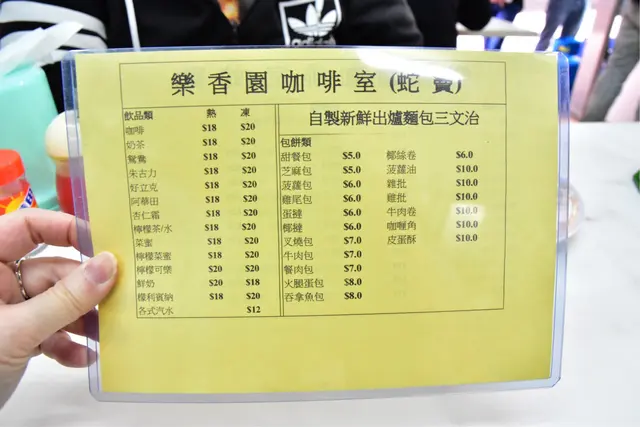 adidas
樂香園咖啡室(蛇竇)
飲品類 熱 凍
咖啡 $18 $20
奶茶 $18 $20
鴛鴦 $18 $20
朱古力 $18 $20
好立克 $18 $20
阿華田 $18 $20
杏仁霜 $18 $20
檸檬茶/水 $18 $20
菜蜜 $18 $20
檸檬菜蜜 $18 $20
檸檬可樂 $20 $20
鮮奶 $20 $18
檬利賓納 $18 $20
各式汽水 $12
自製新鮮出爐麵包三文治
包餅類
甜餐包 $5.0 椰絲卷 $6.0
芝麻包 $5.0 菠蘿油 $10.0
菠蘿包 $6.0 雞批 $10.0
雞尾包 $6.0 雞批 $10.0
蛋撻 $6.0 牛肉卷 $10.0
椰撻 $6.0 咖喱角 $10.0
叉燒包 $7.0 皮蛋酥 $10.0
牛肉包 $7.0
餐肉包 $7.0
火腿蛋包 $8.0
吞拿魚包 $8.0